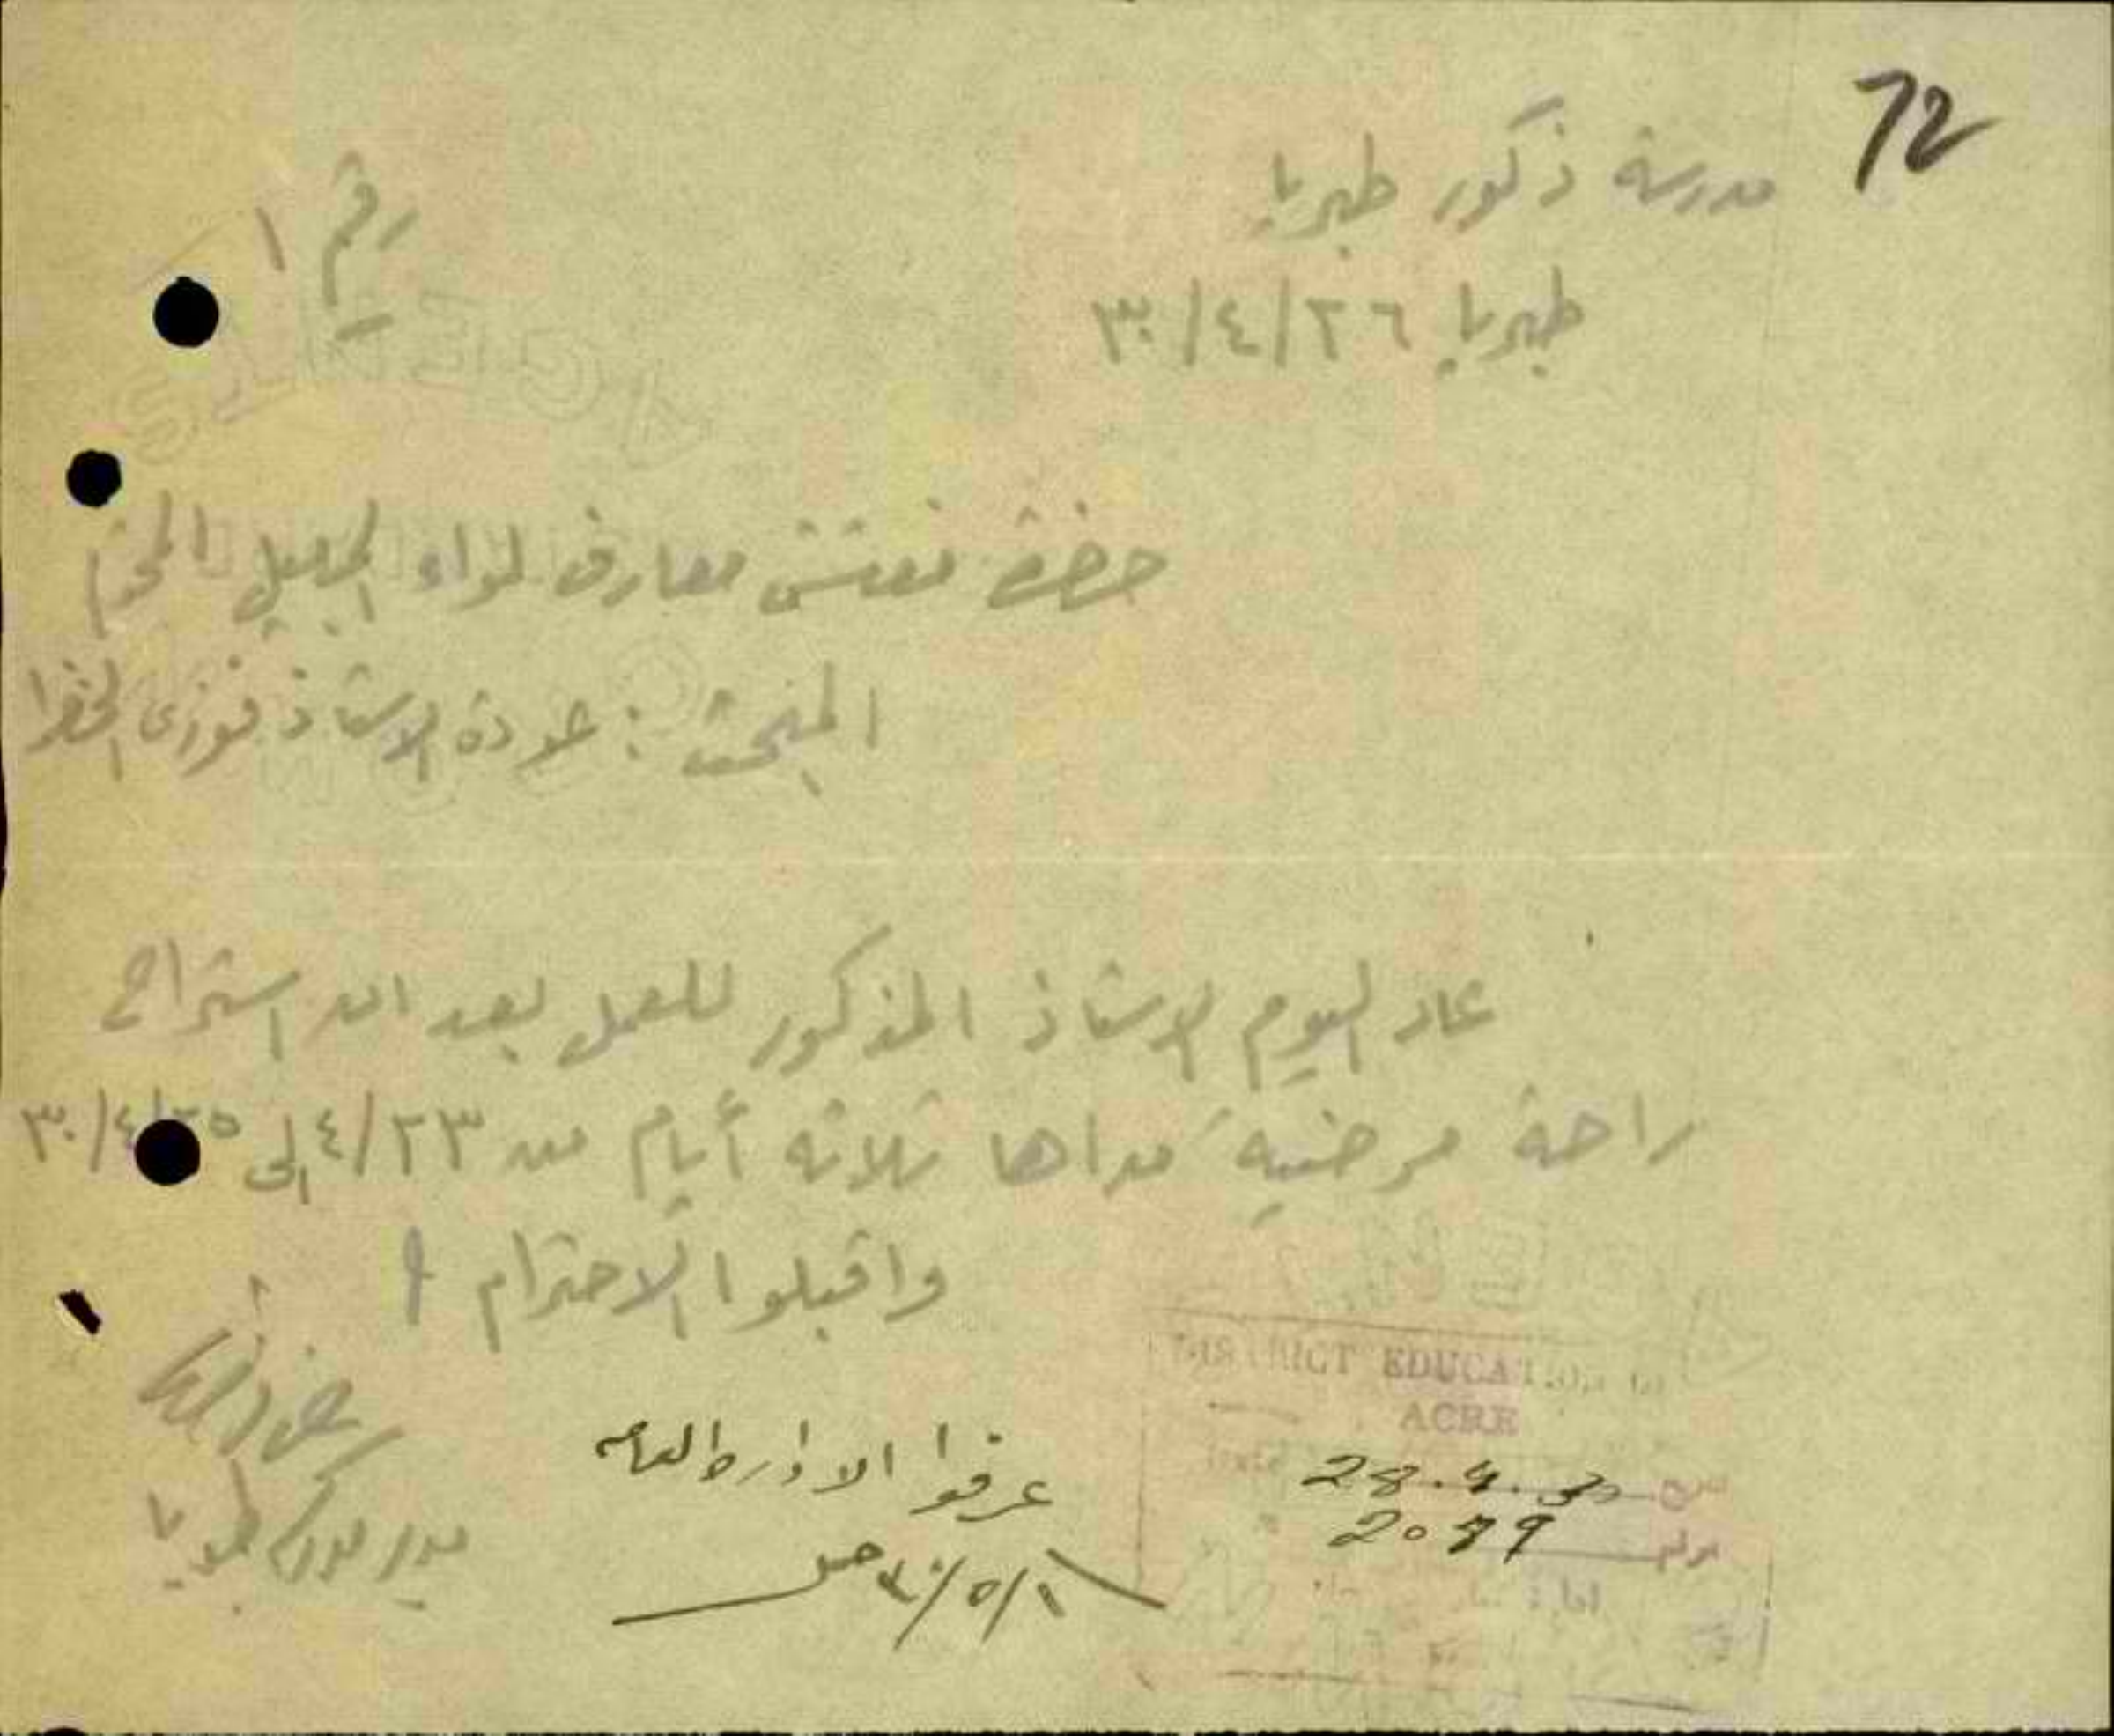 72
مدرسة ذكور طبريا
رقم ١
طبريا ٢٦/٤/٣٠
حضرة مفتش معارف لواء الجليل المحترم
المبحث : عودة الاستاذ فوزي الخضرا
عاد اليوم الاستاذ المذكور للعمل بعد ان استراح
راحة مرضية مداها ثلاثة أيام من ٢٣/٤ الى ٢٥/٤/٣٠
واقبلوا الاحترام
مدير مدرسة طبريا
عرفوا الادارة العامه
١/٥/٣٠
DISTRICT EDUCATION
ACRE
28.4.30
2079